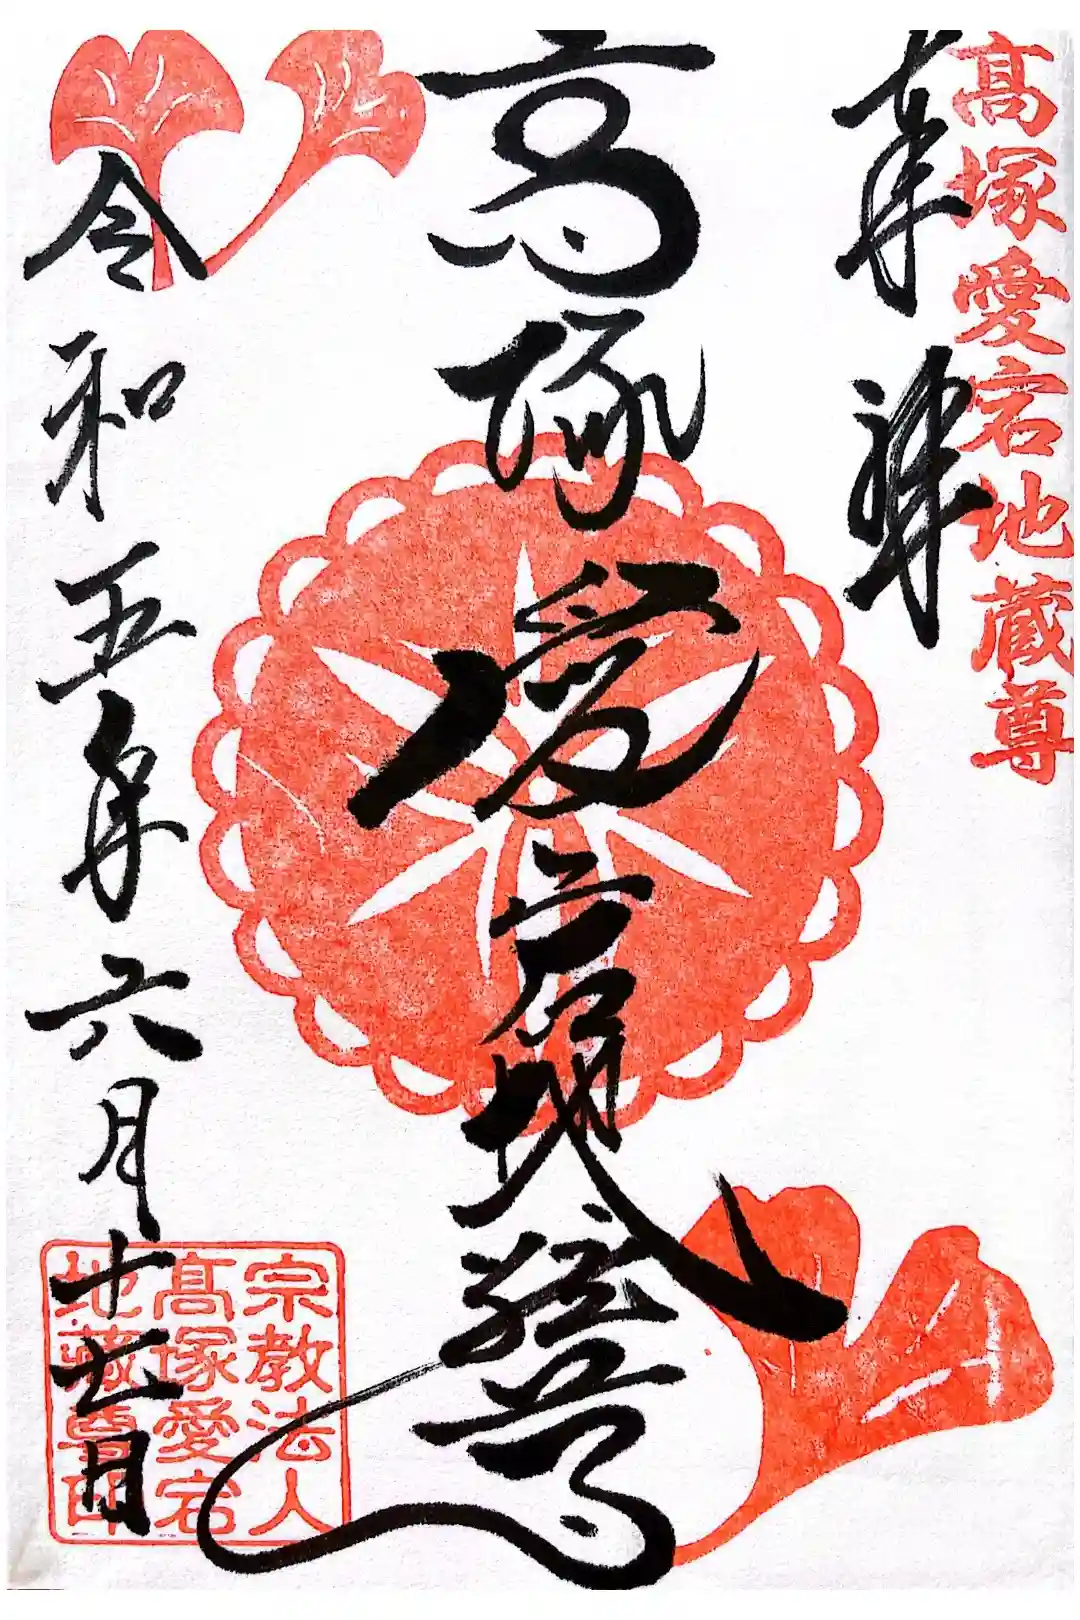 高塚愛宕地蔵尊
奉拝
高塚愛宕地蔵尊
令和五年六月十七日
宗教法人
高塚愛宕
地蔵尊印